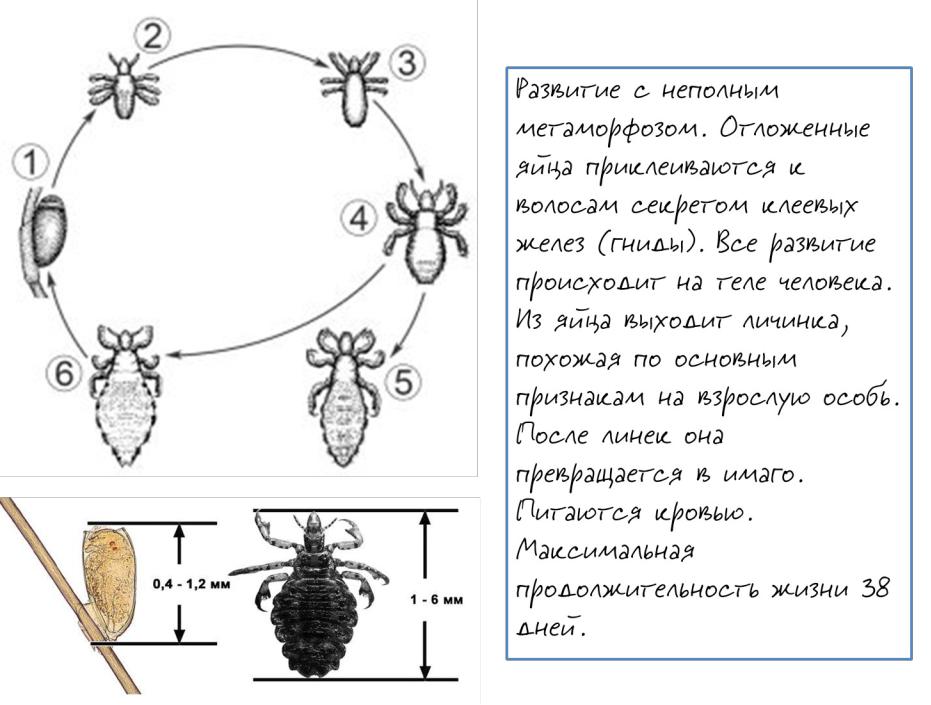 2
3
1
4
5
6
0,4 - 1,2 мм
1 - 6 мм
Развитие с неполным
метаморфозом. Отложенные
яйца приклеиваются к
волосам секретом клеевых
желез (гниды). Все развитие
происходит на теле человека.
Из яйца выходит личинка,
похожая по основным
признакам на взрослую особь.
После линек она
превращается в имаго.
Питаются кровью.
Максимальная
продолжительность жизни 38
дней.